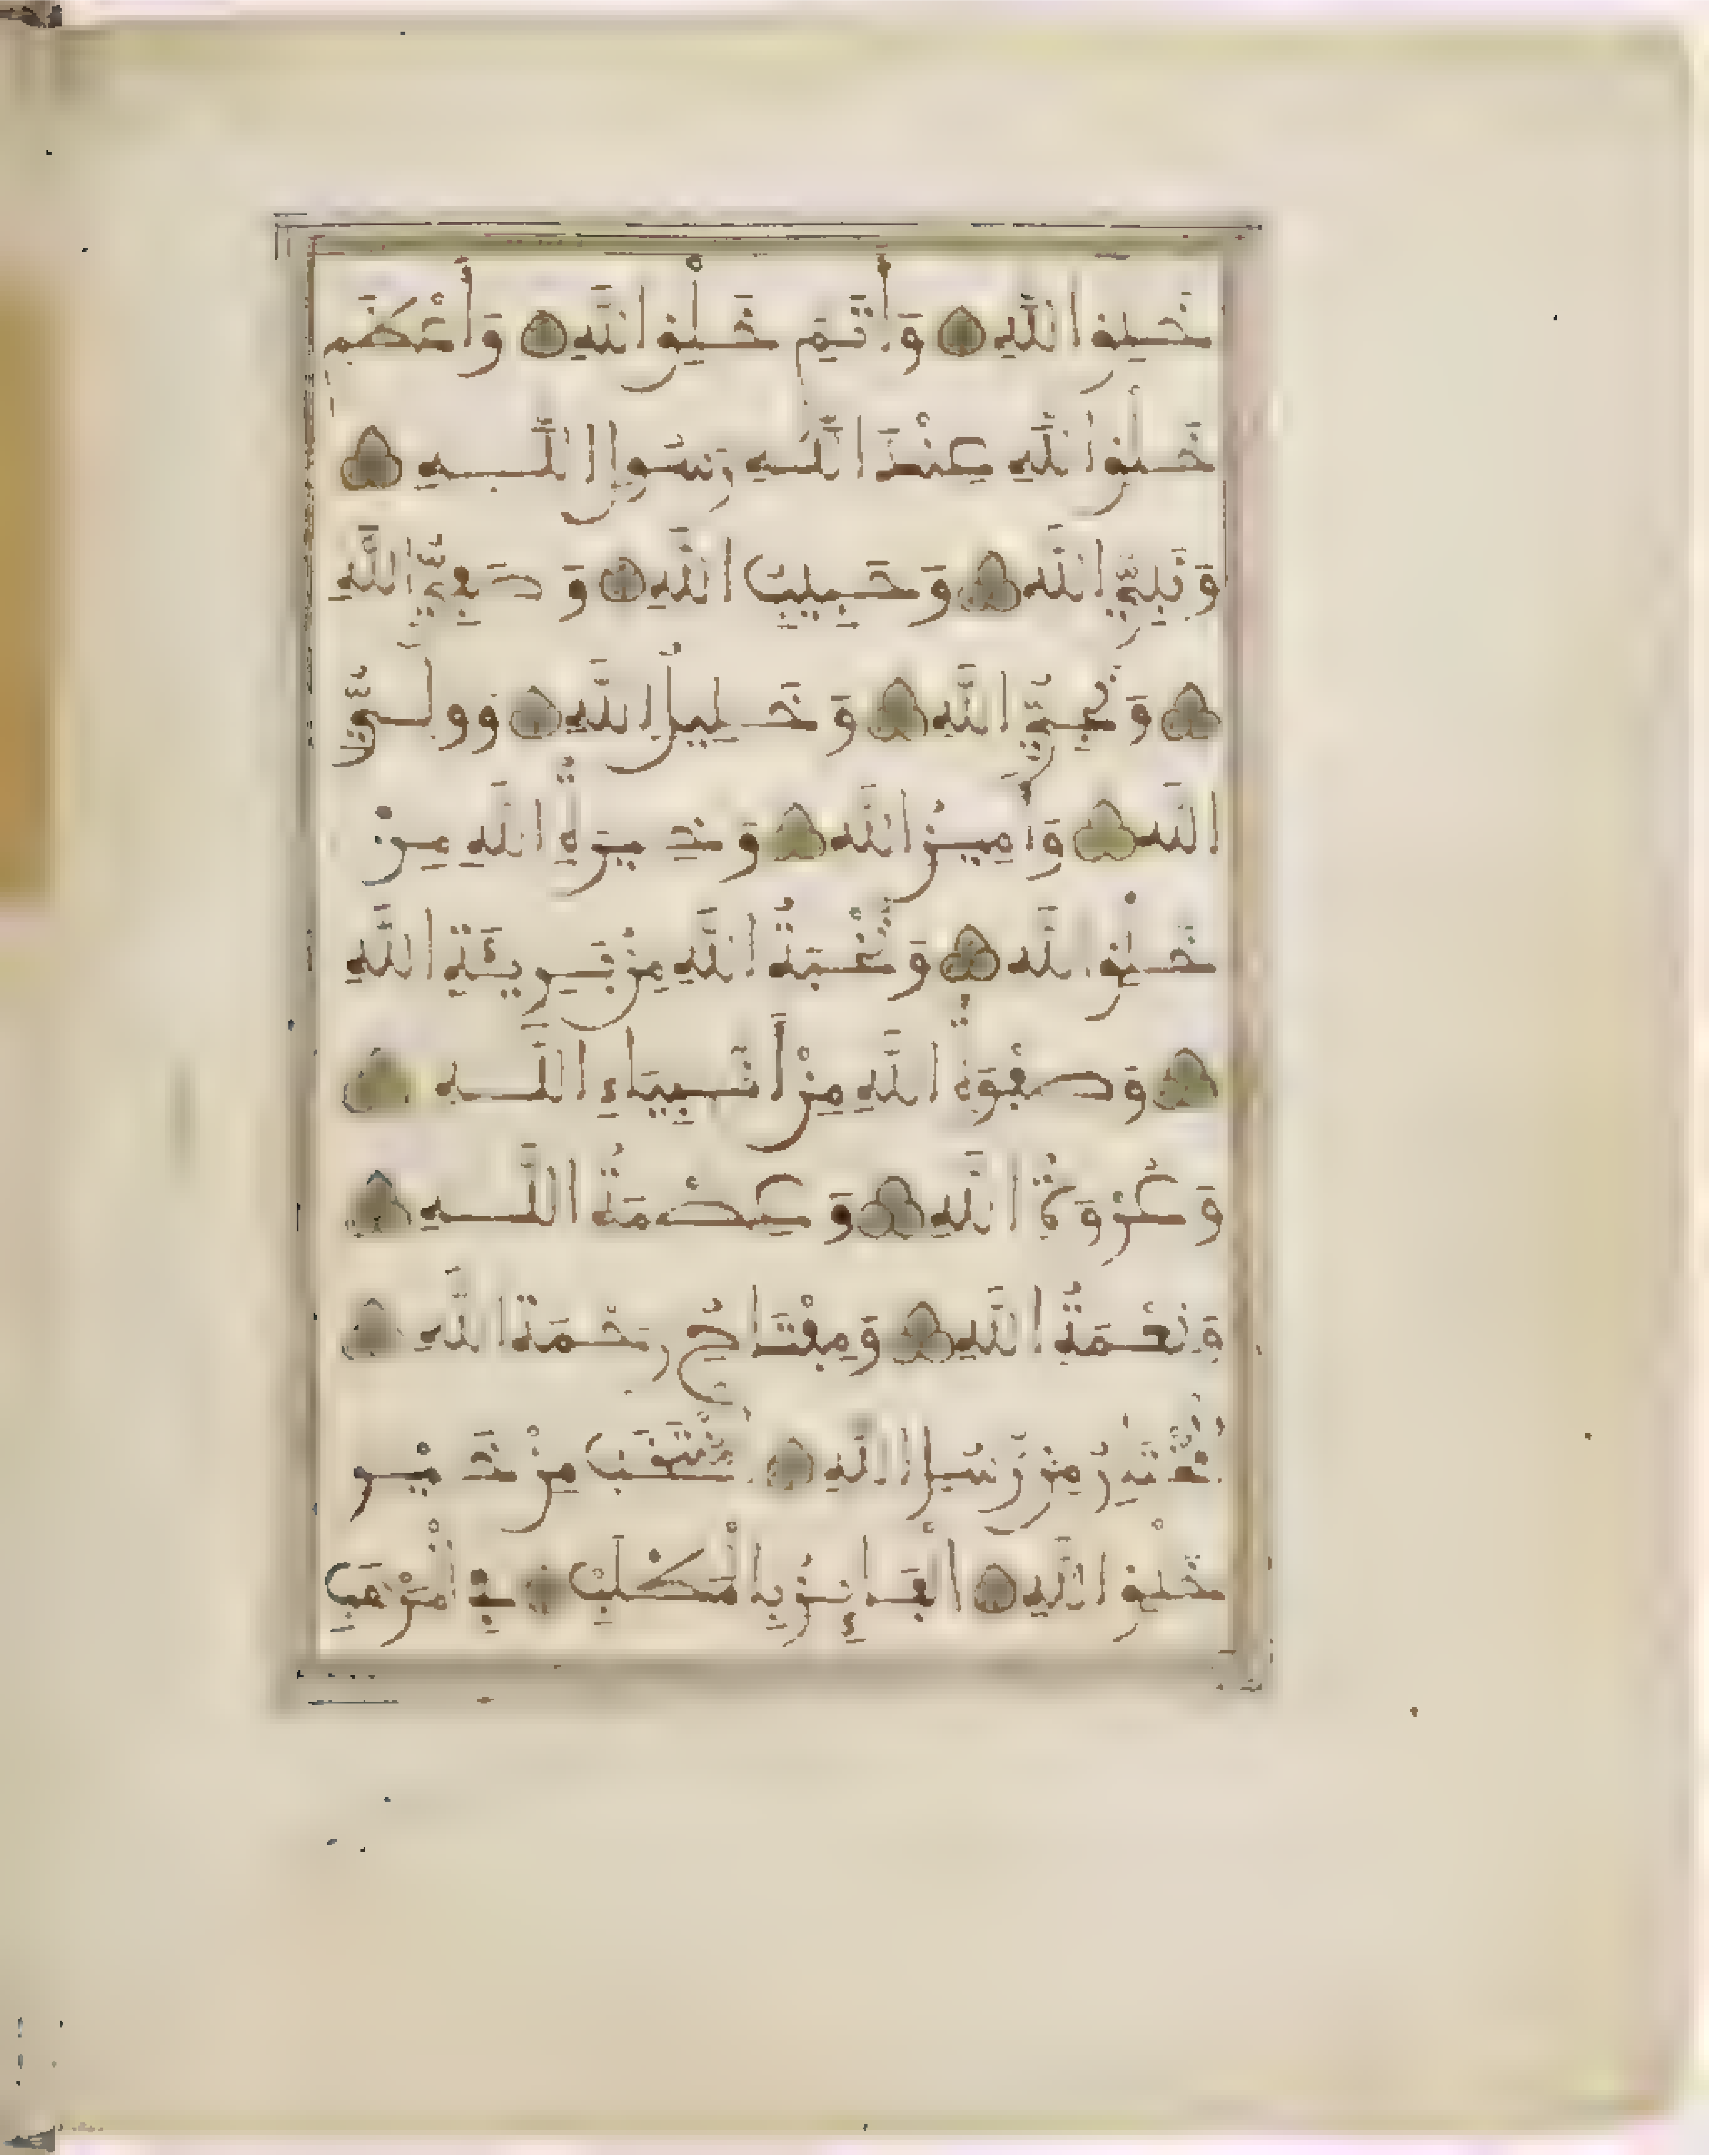 خَلْقِ اللَّهِ وَأَتَمِّ خَلْقِ اللَّهِ وَأَعْظَمِ
خَلْقِ اللَّهِ عِنْدَ اللَّهِ رَسُولِ اللَّهِ
وَنَبِيِّ اللَّهِ وَحَبِيبِ اللَّهِ وَصَفِيِّ اللَّهِ
وَنَجِيِّ اللَّهِ وَخَلِيلِ اللَّهِ وَوَلِيِّ
اللَّهِ وَأَمِينِ اللَّهِ وَخِيرَةِ اللَّهِ مِنْ
خَلْقِ اللَّهِ وَنُخْبَةِ اللَّهِ مِنْ بَرِيَّةِ اللَّهِ
وَصَفْوَةِ اللَّهِ مِنْ أَنْبِيَاءِ اللَّهِ
وَعُرْوَةِ اللَّهِ وَعِصْمَةِ اللَّهِ
وَنِعْمَةِ اللَّهِ وَمِفْتَاحِ رَحْمَةِ اللَّهِ
الْمُخْتَارِ مِنْ رُسُلِ اللَّهِ الْمُنْتَخَبِ مِنْ خَيْرِ
خَلْقِ اللَّهِ الْفَائِزِ بِالْمَطْلَبِ فِي الْمَرْهَبِ